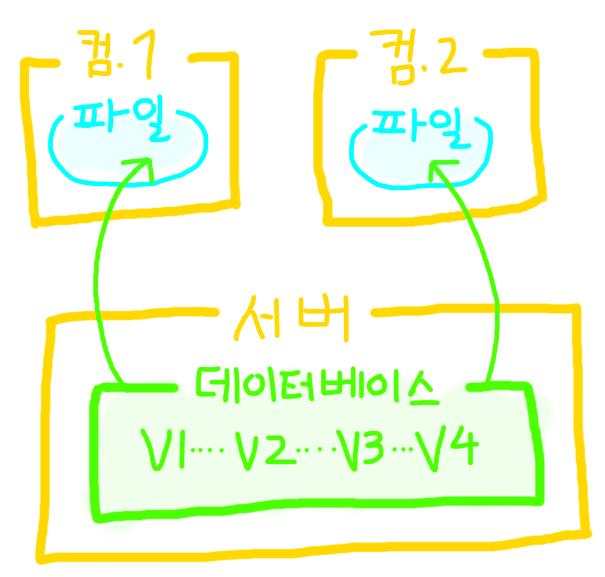 컴.1
컴.2
파일
파일
서버
데이터베이스
V1···· V2····V3···V4